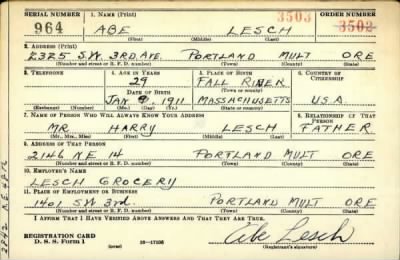 SERIAL NUMBER 1. NAME (Print) 3503 ORDER NUMBER
964 ABE LESCH 3502
(First) (Middle) (Last)
2. ADDRESS (Print)
2325 S.W. 3RD. AVE. PORTLAND MULT ORE
(Number and street or R. F. D. number) (Town) (County) (State)
3. TELEPHONE 4. AGE IN YEARS 5. PLACE OF BIRTH 6. COUNTRY OF CITIZENSHIP
29 FALL RIVER
DATE OF BIRTH (Town or county)
JAN 9, 1911 MASSACHUSETTS U.S.A.
(Exchange) (Number) (Mo.) (Day) (Yr.) (State or country)
7. NAME OF PERSON WHO WILL ALWAYS KNOW YOUR ADDRESS 8. RELATIONSHIP OF THAT PERSON
MR. HARRY LESCH FATHER
(Mr., Mrs., Miss) (First) (Middle) (Last)
9. ADDRESS OF THAT PERSON
2146 N.E 14 PORTLAND MULT ORE
(Number and street or R. F. D. number) (Town) (County) (State)
10. EMPLOYER'S NAME
LESCH GROCERY
11. PLACE OF EMPLOYMENT OR BUSINESS
1401 S.W 3rd. PORTLAND MULT ORE
(Number and street or R. F. D. number) (Town) (County) (State)
I AFFIRM THAT I HAVE VERIFIED ABOVE ANSWERS AND THAT THEY ARE TRUE.
REGISTRATION CARD
D. S. S. Form 1 (over) 16-17105 Abe Lesch
(Registrant's signature)
2842 N.E.